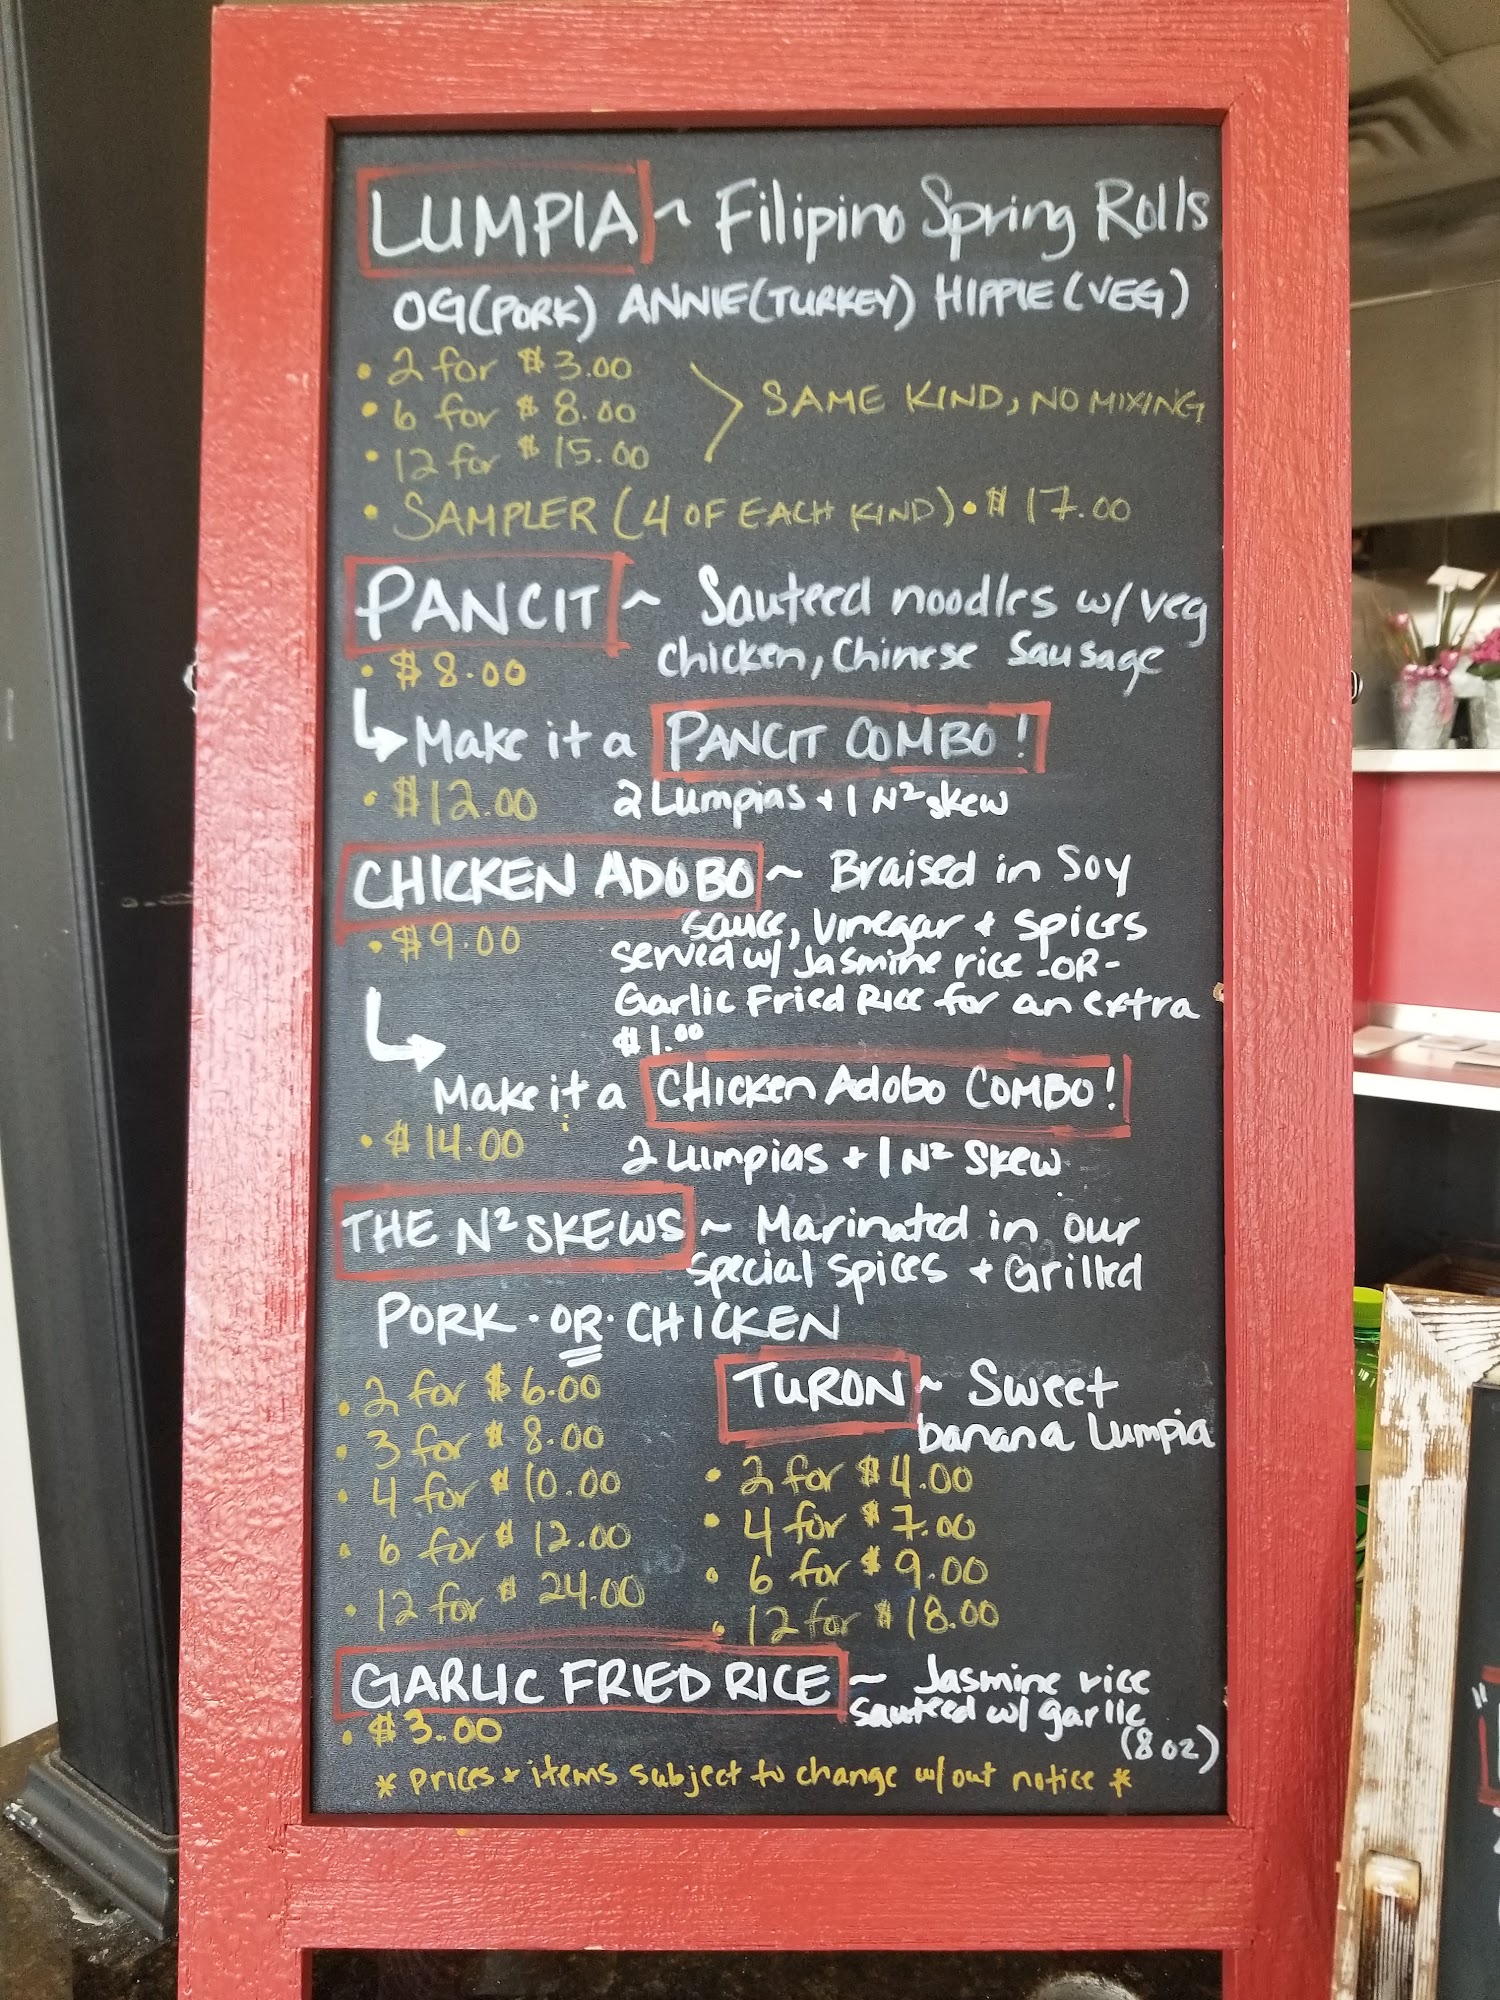 LUMPIA ~ Filipino Spring Rolls
OG (PORK) ANNIE (TURKEY) HIPPIE (VEG)
• 2 for $3.00
• 6 for $8.00
• 12 for $15.00
SAME KIND, NO MIXING
• SAMPLER (4 OF EACH KIND) • $17.00
PANCIT ~ Sauteed noodles w/ veg
chicken, Chinese Sausage
• $8.00
Make it a PANCIT COMBO!
• $12.00 2 Lumpias + 1 N² skew
CHICKEN ADOBO ~ Braised in Soy
sauce, Vinegar + spices
• $9.00
served w/ Jasmine rice -OR-
Garlic Fried Rice for an extra
$1.00
Make it a CHicken Adobo COMBO!
• $14.00 2 Lumpias + 1 N² Skew
THE N² SKEWS ~ Marinated in our
special spices + Grilled
PORK · OR · CHICKEN
• 2 for $6.00
• 3 for $8.00
• 4 for $10.00
• 6 for $12.00
• 12 for $24.00
TURON ~ Sweet
banana Lumpia
• 2 for $4.00
• 4 for $7.00
• 6 for $9.00
• 12 for $18.00
GARLIC FRIED RICE ~ Jasmine rice
sauteed w/ garlic
(8 oz)
• $3.00
* prices + items subject to change w/out notice *